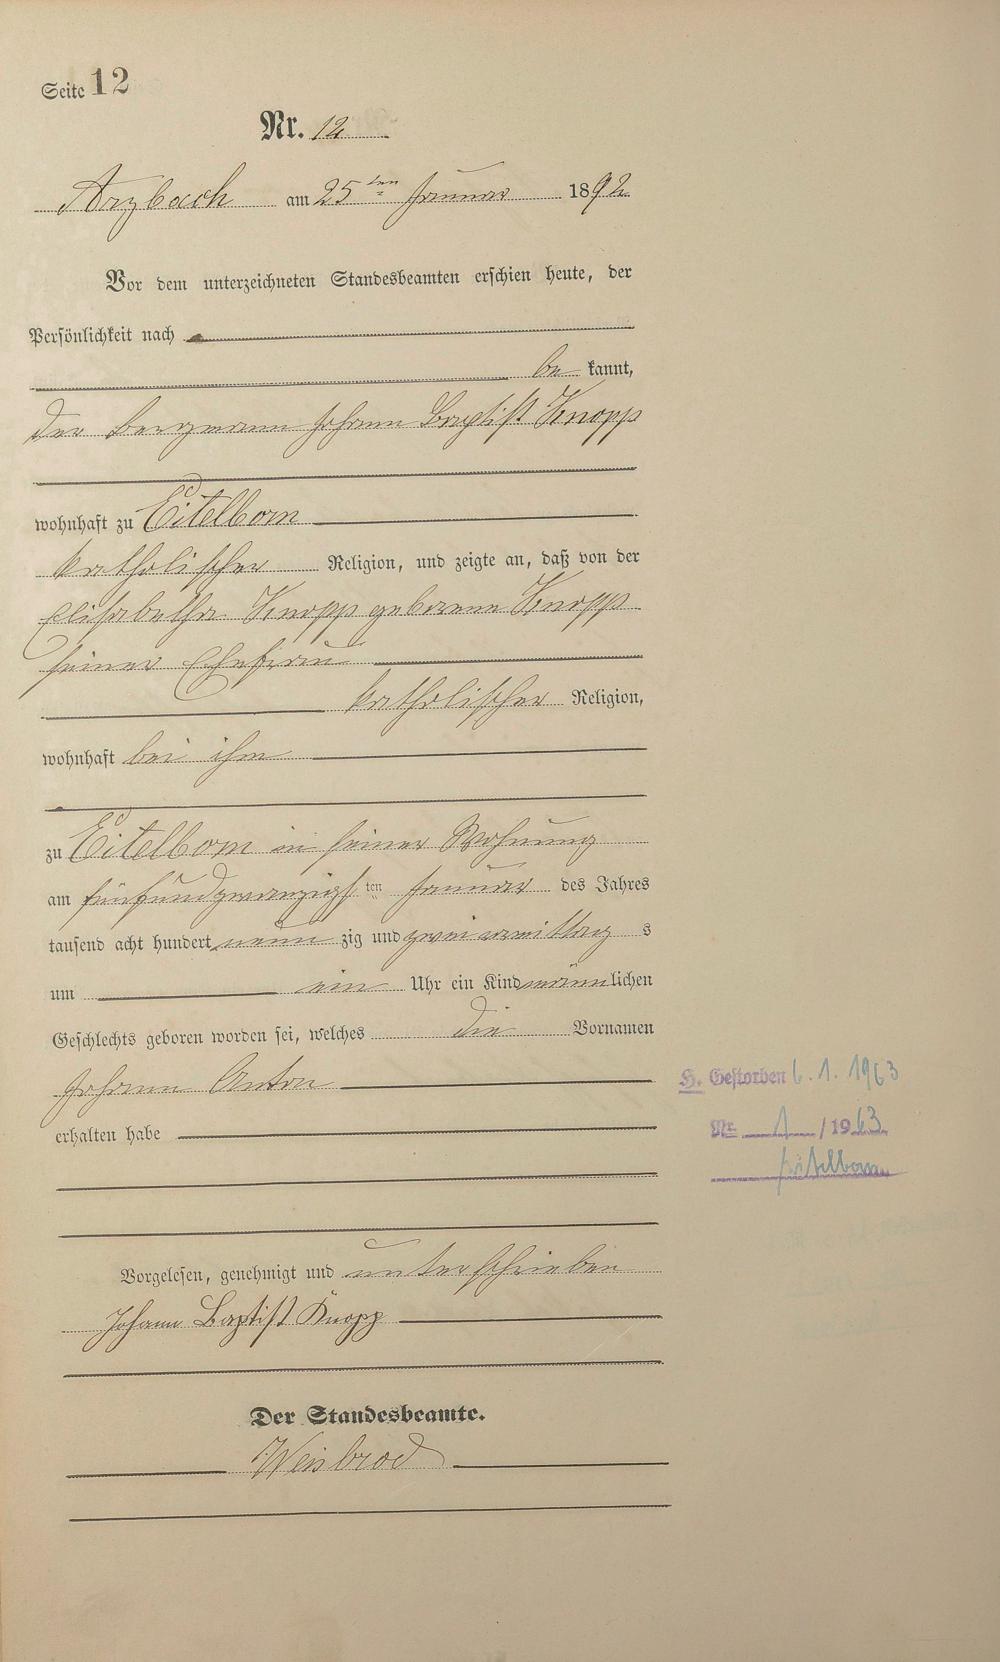 Seite 12
Nr. 12
Arzbach am 25ten Januar 1892
Vor dem unterzeichneten Standesbeamten erschien heute, der
Persönlichkeit nach
be kannt,
der Bergmann Johann Baptist Knopp
wohnhaft zu Eitelborn
katholischer Religion, und zeigte an, daß von der
Elisabetha Knopp geborene Knopp
seiner Ehefrau
katholischer Religion,
wohnhaft bei ihm
zu Eitelborn in seiner Wohnung
am fünfundzwanzigsten Januar des Jahres
tausend acht hundert neun zig und zwei vormittag s
um ein Uhr ein Kind männlichen
Geschlechts geboren worden sei, welches die Vornamen
Johann Anton
erhalten habe
H. Gestorben 6.1.1963
Nr. 1 / 1963
Eitelborn
Vorgelesen, genehmigt und unterschrieben
Johann Baptist Knopp
Der Standesbeamte.
Weisbrod